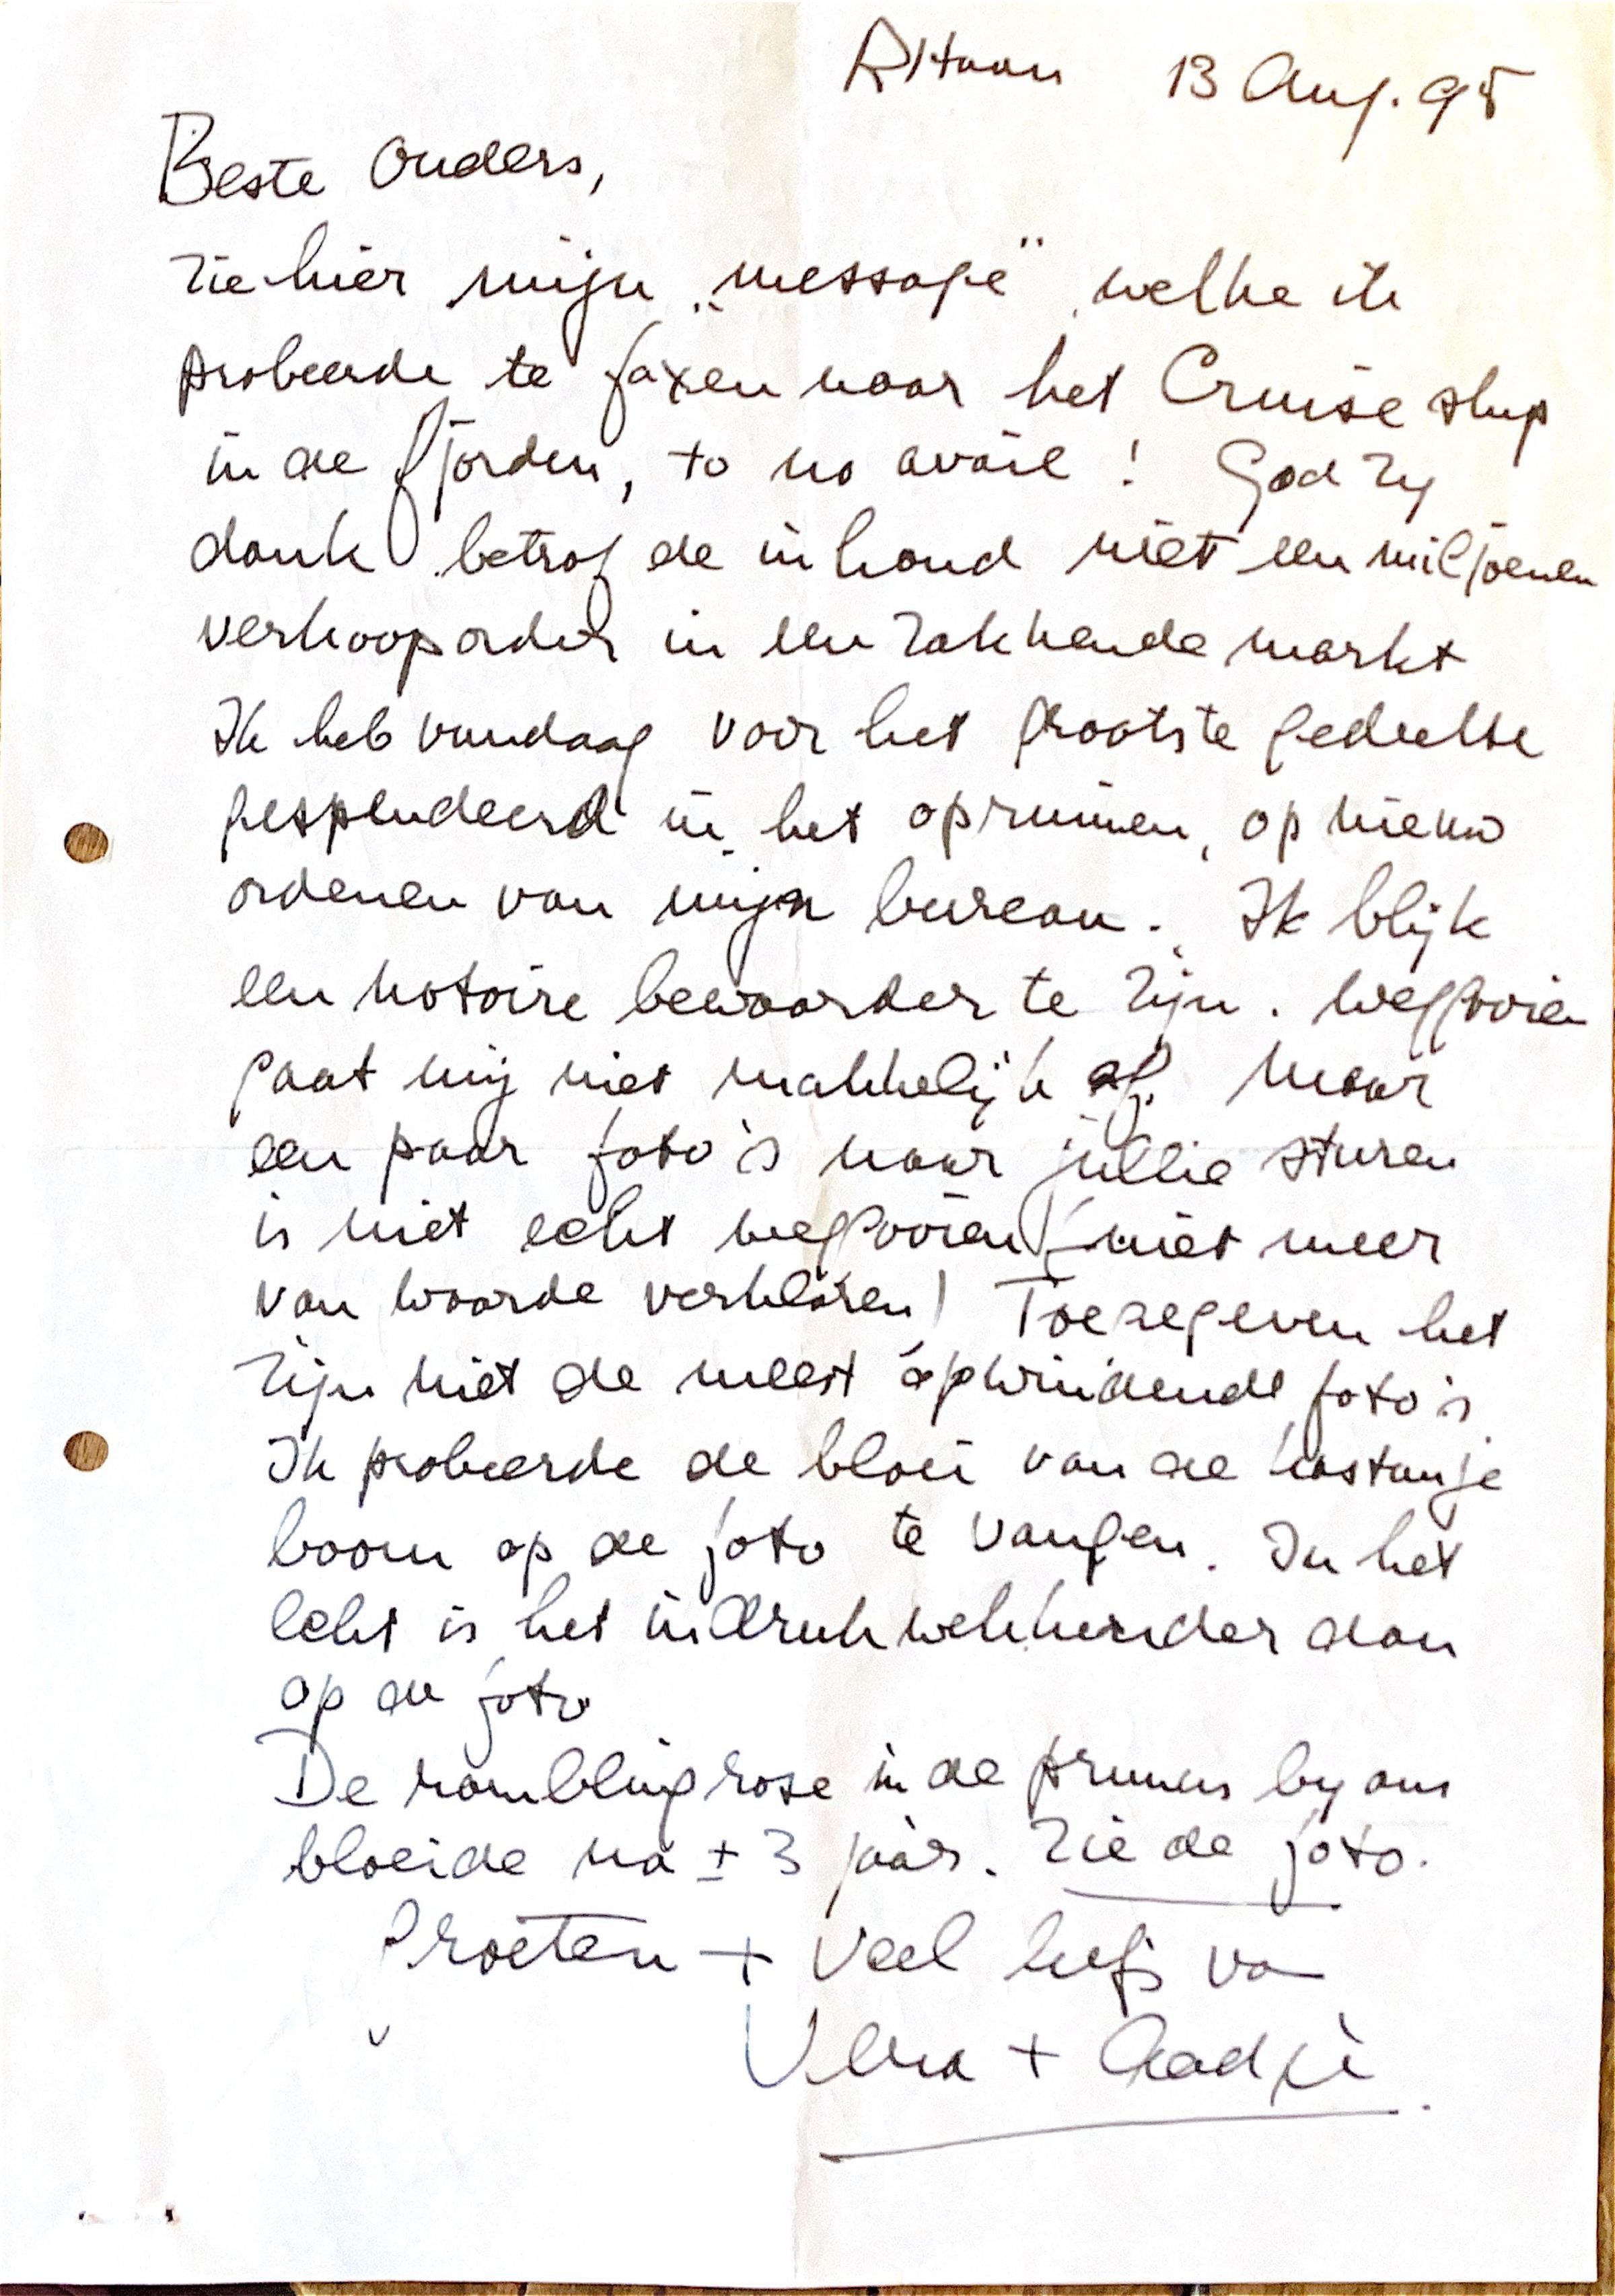 13 Aug. 95
Beste Ouders,
Zie hier mijn „message” welke ik
probeerde te faxen naar het Cruise ship
in de fjorden, to no avail! God zy
dank betrof de inhoud niet een miljoenen
verkooporder in een zakkende markt
Ik heb vandaag voor het grootste gedeelte
gespendeerd in het opruimen, opnieuw
ordenen van mijn bureau. Ik blijk
een notoire bewaarder te zijn. Weggooien
gaat mij niet makkelijk af. Maar
een paar foto's naar jullie sturen
is niet echt weggooien (niet meer
van waarde verklaren) Toegegeven het
zijn niet de meest opwindende foto's
Ik probeerde de bloei van de kastanje
boom op de foto te vangen. In het
echt is het indrukwekkender dan
op de foto
De rambling rose in de prunus by ons
bloeide na ± 3 jaar. Zie de foto.
Groeten + veel liefs van
Vera + Aadje